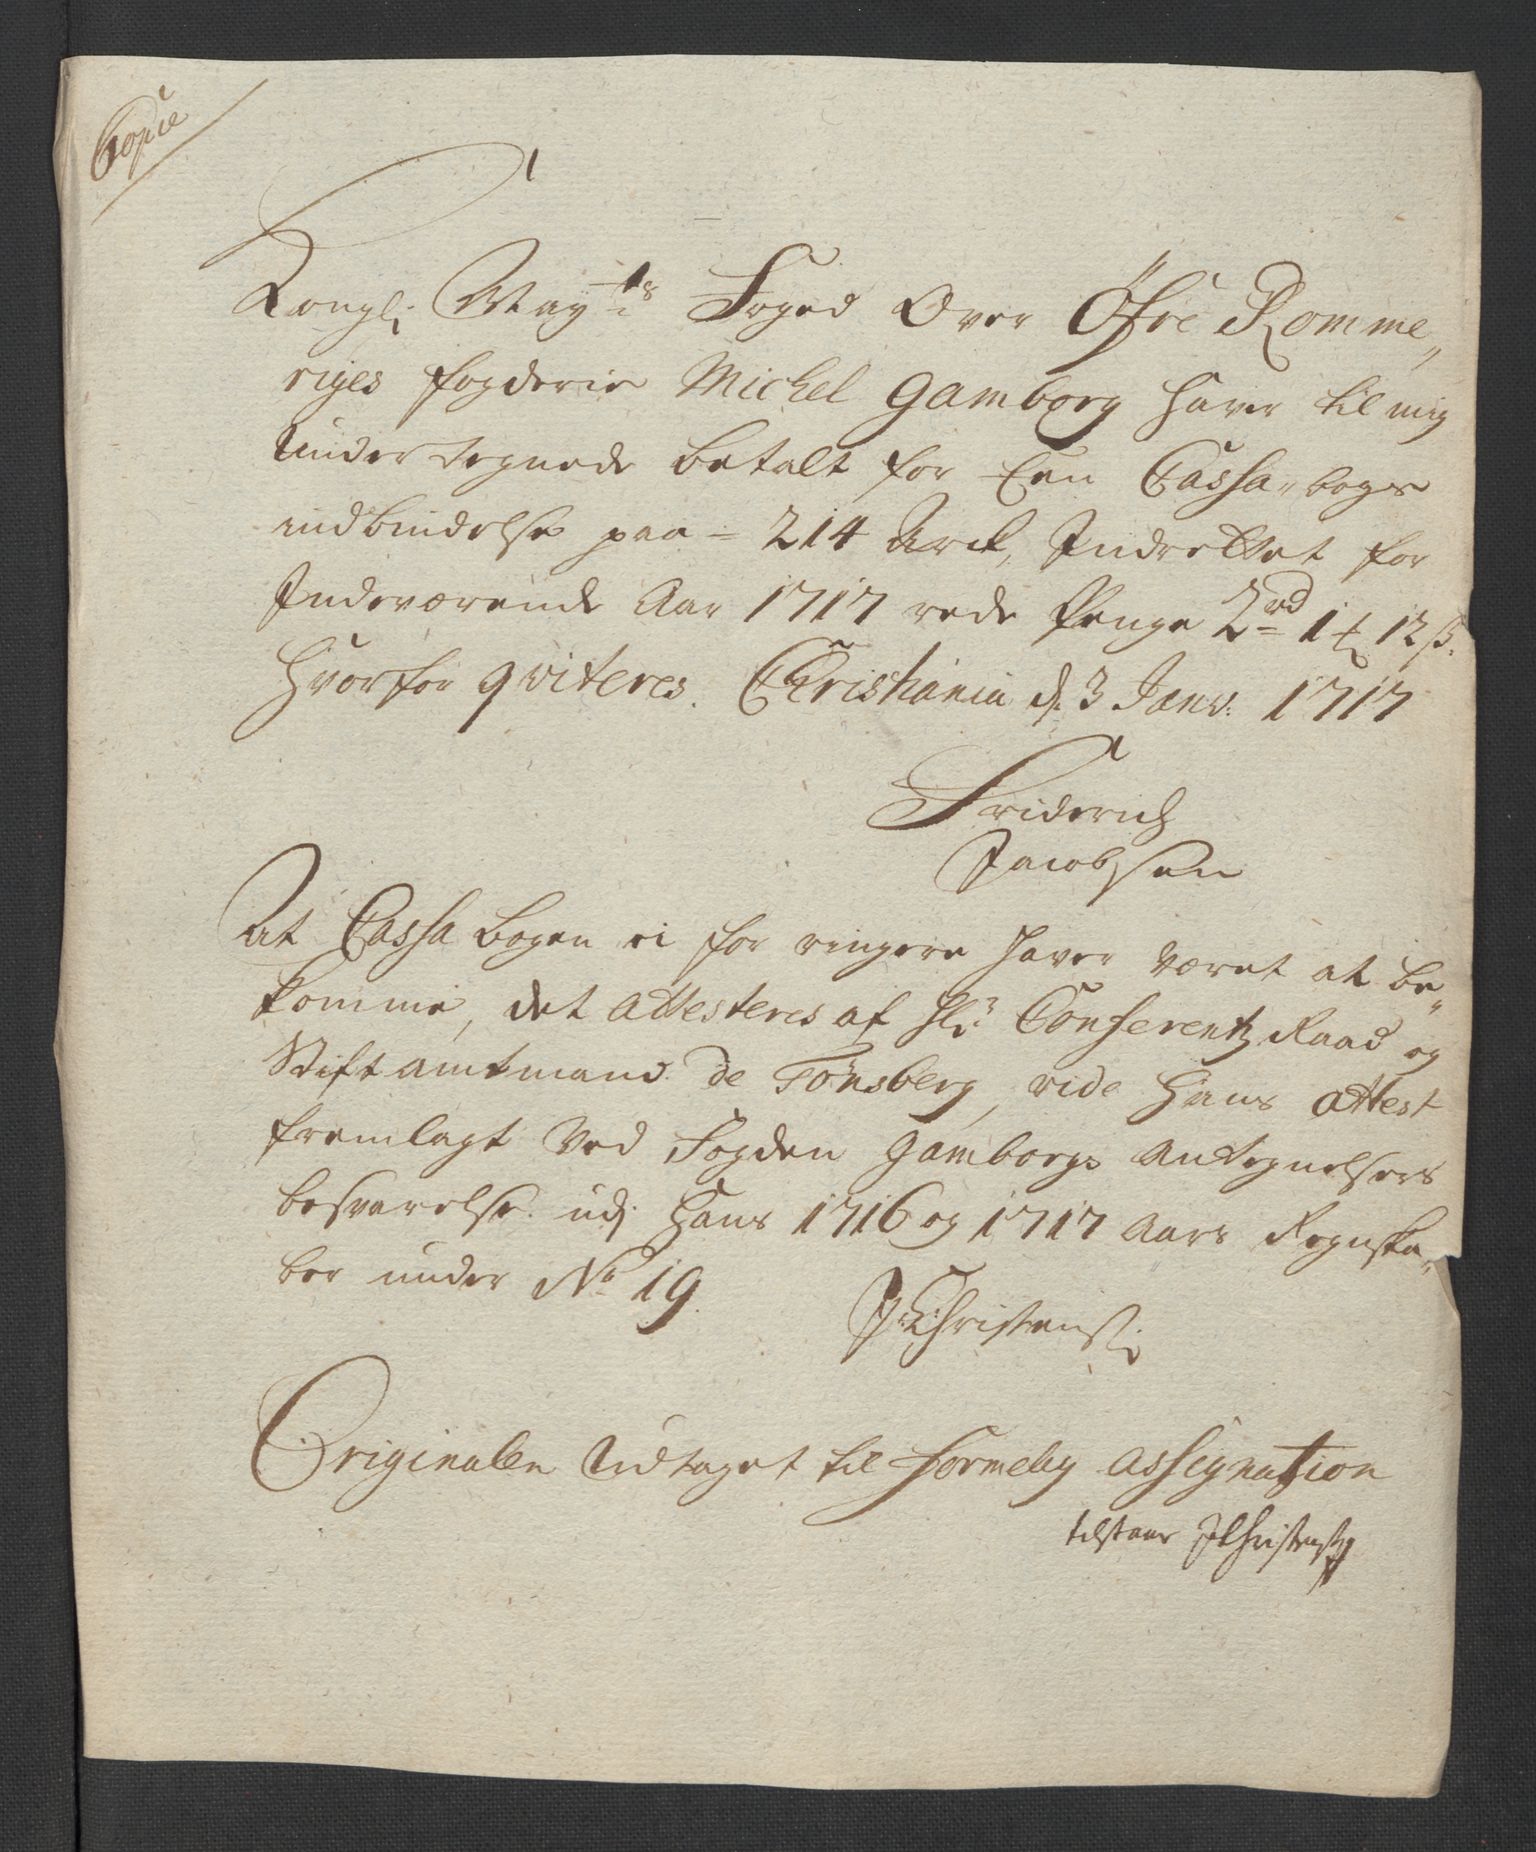 Copie
Kongl: May:ts Foged Over Öfre Romme„
riges fogderie Michel Gamborg haver til mig
Under tegnede betalt for Een Cassa„bogs
indbindelse paa = 214 Arck, Indrettet for
Indeværende Aar 1717 rede Penge 2 rd 1 ƶ 12 ß.
Hvorfor qviteres. Christiania d. 3 Janv: 1717
Friderich
Jacobsen
At Cassa bogen ei for ringere haver været at be„
komme, det attesteres af Hr: Conferentz Raad og
Stiftamtmand de Tønsberg, vide hans attest
fremlagt ved Fogden Gamborgs Antegnelsers
besvarelse udj hans 1716 og 1717 Aars Regnska„
ber under No 19.
J: Christens:
Originalen Udtaget til formelig assignation
tilstaar JChristens